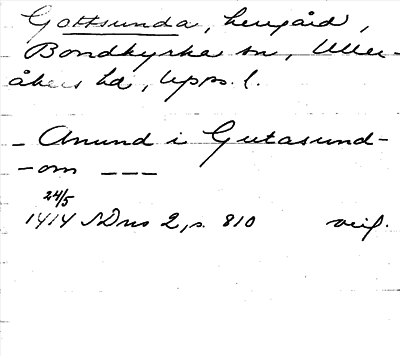 Gottsunda, herrgård,
Bondkyrka sn, Uller-
åkers hd, Upps. l.
- Anund i Gutasund-
- om ---
24/5
1414 SDns 2, s. 810